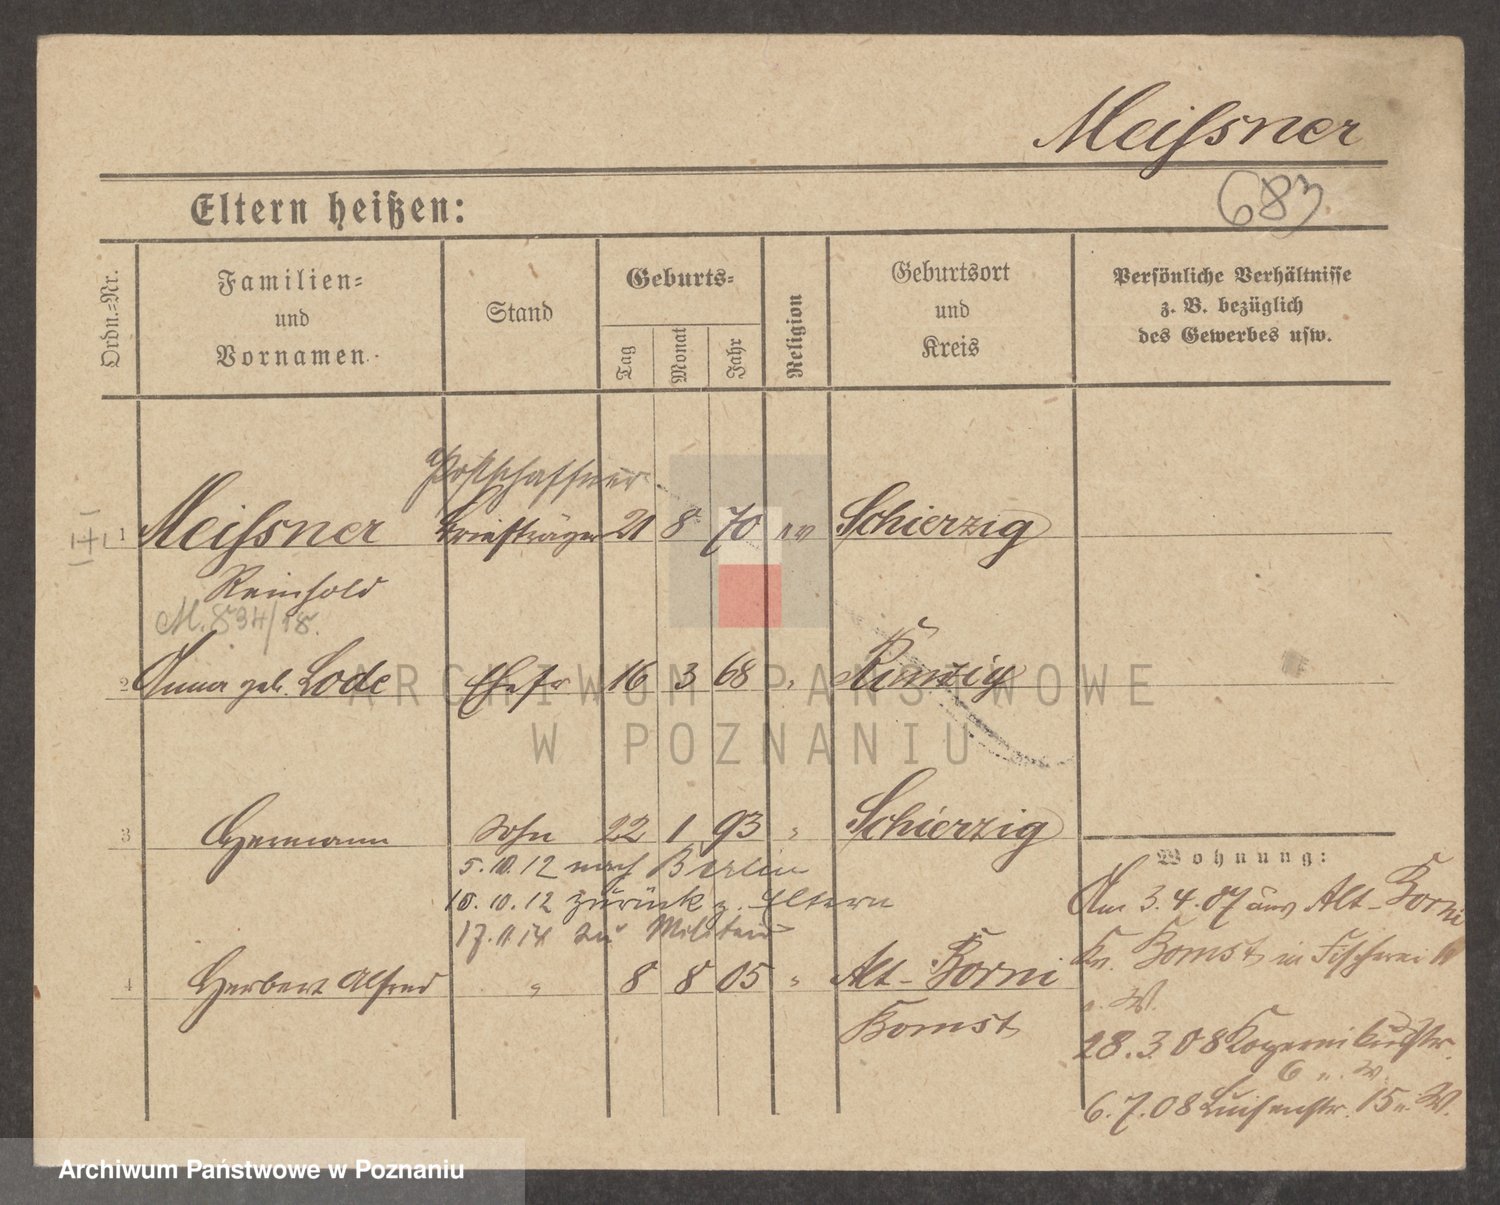 Meißner
683
Eltern heißen:
Ordn.=Nr.
Familien=
und
Vornamen.
Stand
Geburts=
Tag
Monat
Jahr
Religion
Geburtsort
und
Kreis
Persönliche Verhältnisse
z. B. bezüglich
des Gewerbes usw.
Postschaffner
1 Meißner Briefträger 21 8 70 ev Schierzig
Reinhold
M. 834/18.
2 Anna geb. Lode Ehefr 16 3 68 " Rinzig
3 Hermann Sohn 22 1 93 " Schierzig
5.10.12 nach Berlin
15.10.12 zurück z. Eltern
17.11.14 zu Militär
4 Herbert Alfred " 8 8 05 " Alt-Borni
Bomst
Wohnung:
Am 3.4.07 aus Alt-Borni
Kr. Bomst in Fischerei
n. W.
28.3.08 Kopernikusstr.
6 n. W.
6.7.08 Luisenstr. 15 n. W.
ARCHIWUM PAŃSTWOWE
W POZNANIU
Archiwum Państwowe w Poznaniu